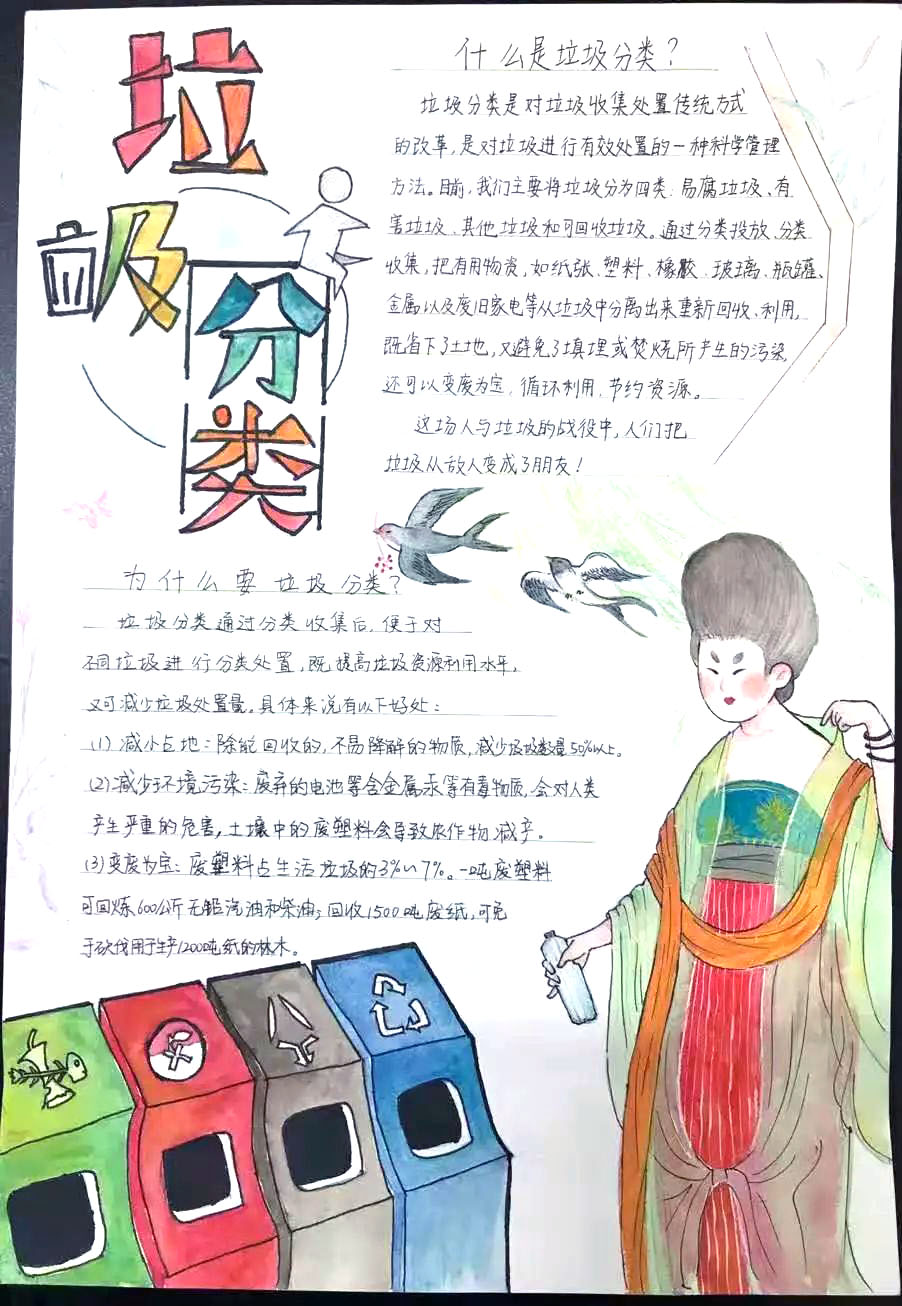 垃圾分类
什么是垃圾分类？
垃圾分类是对垃圾收集处置传统方式
的改革，是对垃圾进行有效处置的一种科学管理
方法。目前，我们主要将垃圾分为四类：易腐垃圾、有
害垃圾、其他垃圾和可回收垃圾。通过分类投放、分类
收集，把有用物资，如纸张、塑料、橡胶、玻璃、瓶罐、
金属以及废旧家电等从垃圾中分离出来重新回收、利用，
既省下了土地，又避免了填埋或焚烧所产生的污染，
还可以变废为宝，循环利用，节约资源。
这场人与垃圾的战役中，人们把
垃圾从敌人变成了朋友！
为什么要垃圾分类？
垃圾分类通过分类收集后，便于对
不同垃圾进行分类处置，既提高垃圾资源利用水平，
又可减少垃圾处置量。具体来说有以下好处：
(1) 减小占地：除能回收的，不易降解的物质，减少垃圾数量50%以上。
(2)减少环境污染：废弃的电池等含金属汞等有毒物质，会对人类
产生严重的危害，土壤中的废塑料会导致农作物减产。
(3)变废为宝：废塑料占生活垃圾的3%~7%。一吨废塑料
可回炼600公斤无铅汽油和柴油；回收1500吨废纸，可免
于砍伐用于生产1200吨纸的林木。